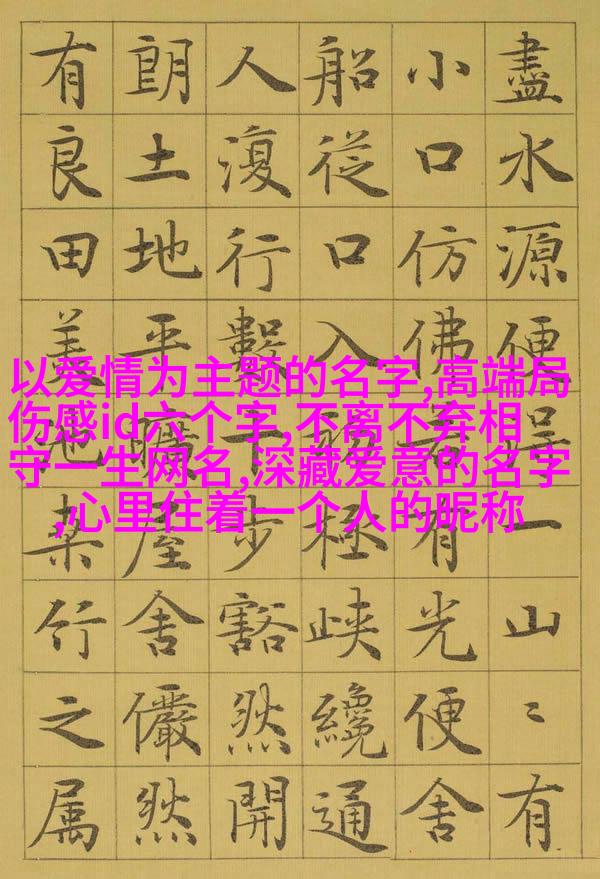 以爱情为主题的名字,高端局
伤感id六个字,不离不弃相
守一生网名,深藏爱意的名字
,心里住着一个人的昵称
盡水源便得一山〻有
小口仿佛若有光便舍
船從口入初極峽纔通
人復行數十步豁然開
朗土地平曠屋舍儼然
有良田美池桑竹之属